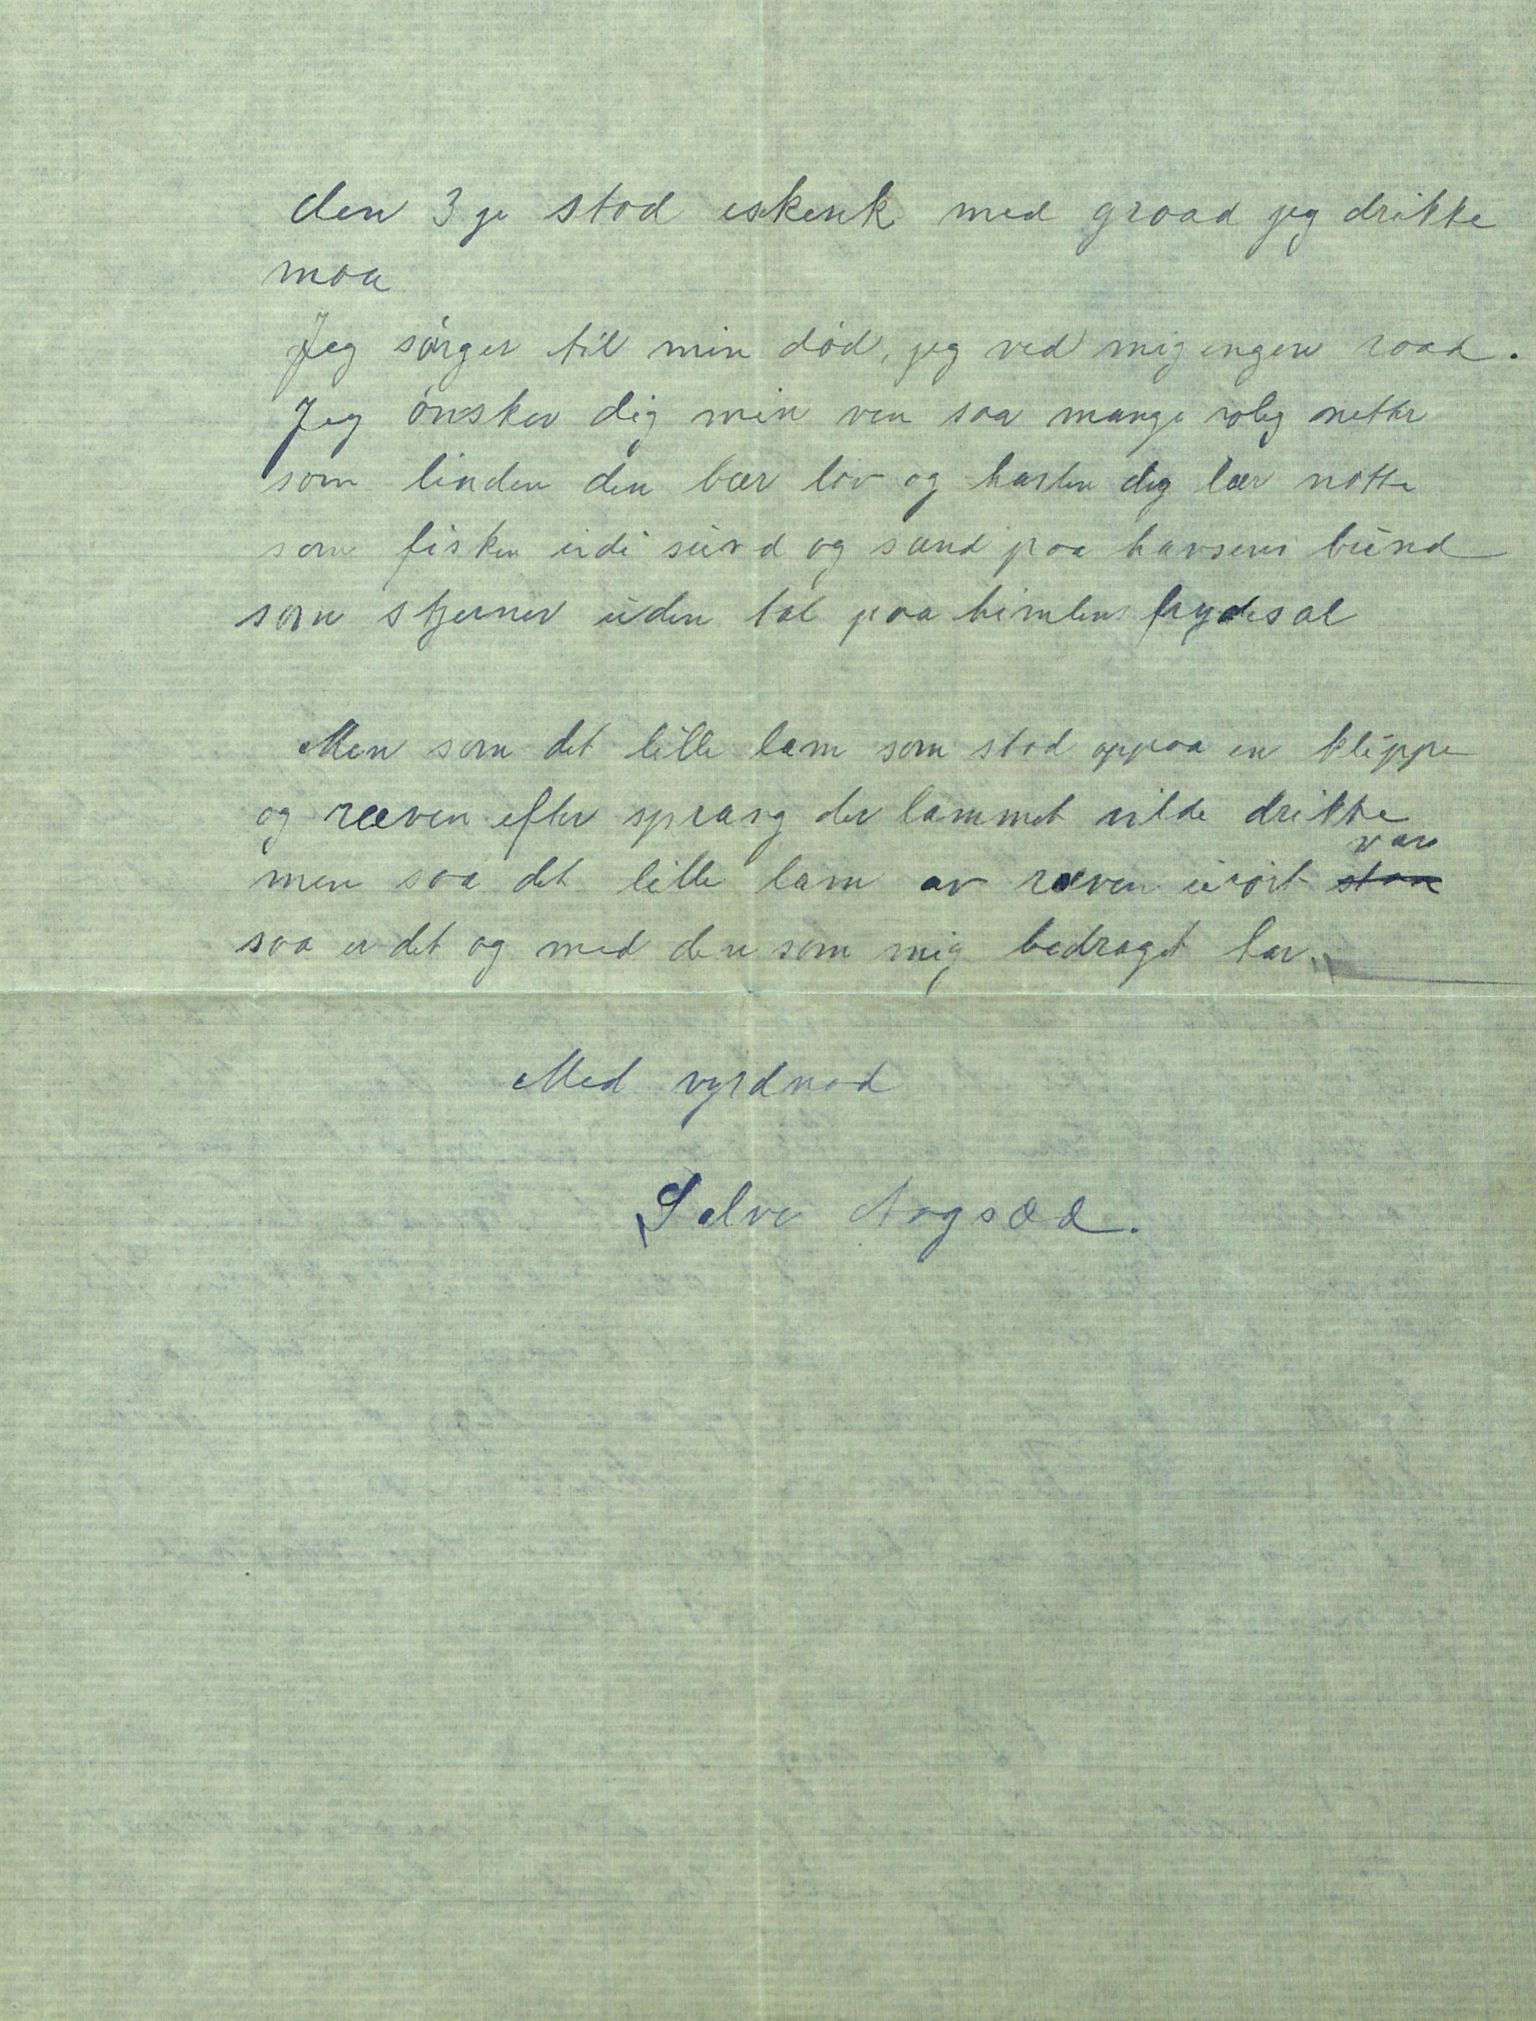 den 3 je stod iskenk med graad jeg drikke
maa
Jeg sørger til min død, jeg ved mig ingen raad.
Jeg ønsker dig min ven saa mange rolig netter
som linden den bær løv og haslen dig bær nøtte
som fisken udi sund og sand paa havsens bund
som stjerner uden tal paa himlens frydesal
Men som det lille lam som stod oppaa en klippe
og ræven efter sprang der lammet vilde drikke
var
men saa det lille lam av ræven urørt
saa er det og med den som mig bedraget har.
Med vyrdnad
Salve